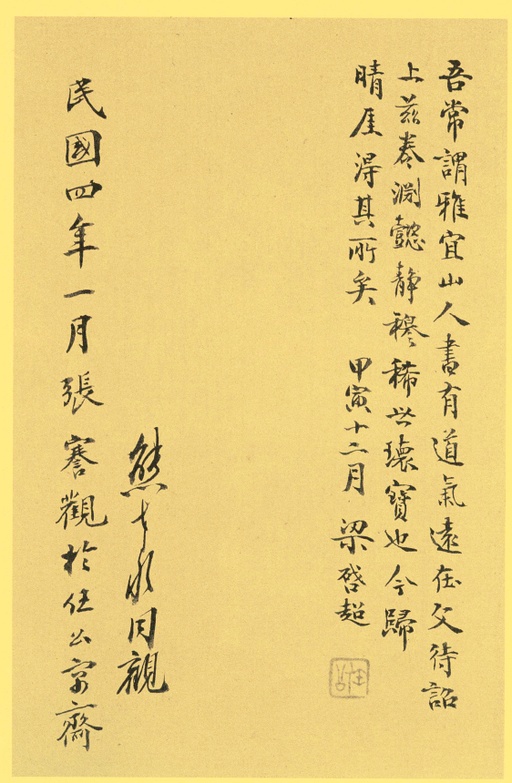 吾常謂雅宜山人書有道氣遠在父待詔
上茲卷淵懿靜穆稀世瓌寶也今歸
晴厓得其所矣 甲寅十二月 梁啓超
熊七水同觀
民國四年一月張謇觀於任公寓齋